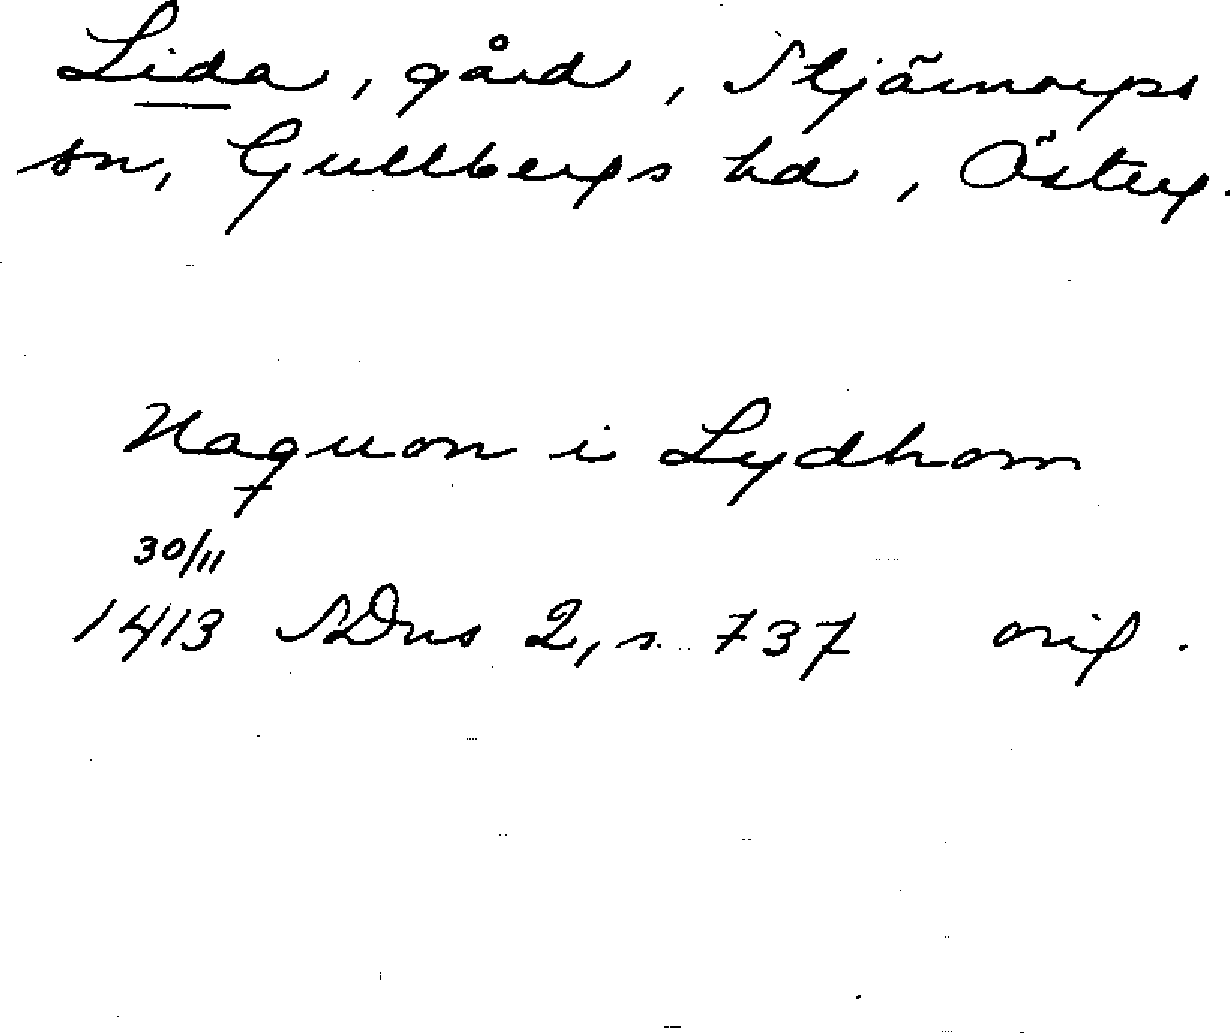 Lida, gård, Stjärnorps
sn, Gullbergs hd, Österg.
Haquon i Lydhom
30/11
1413 SDns 2, s. 737 orig.